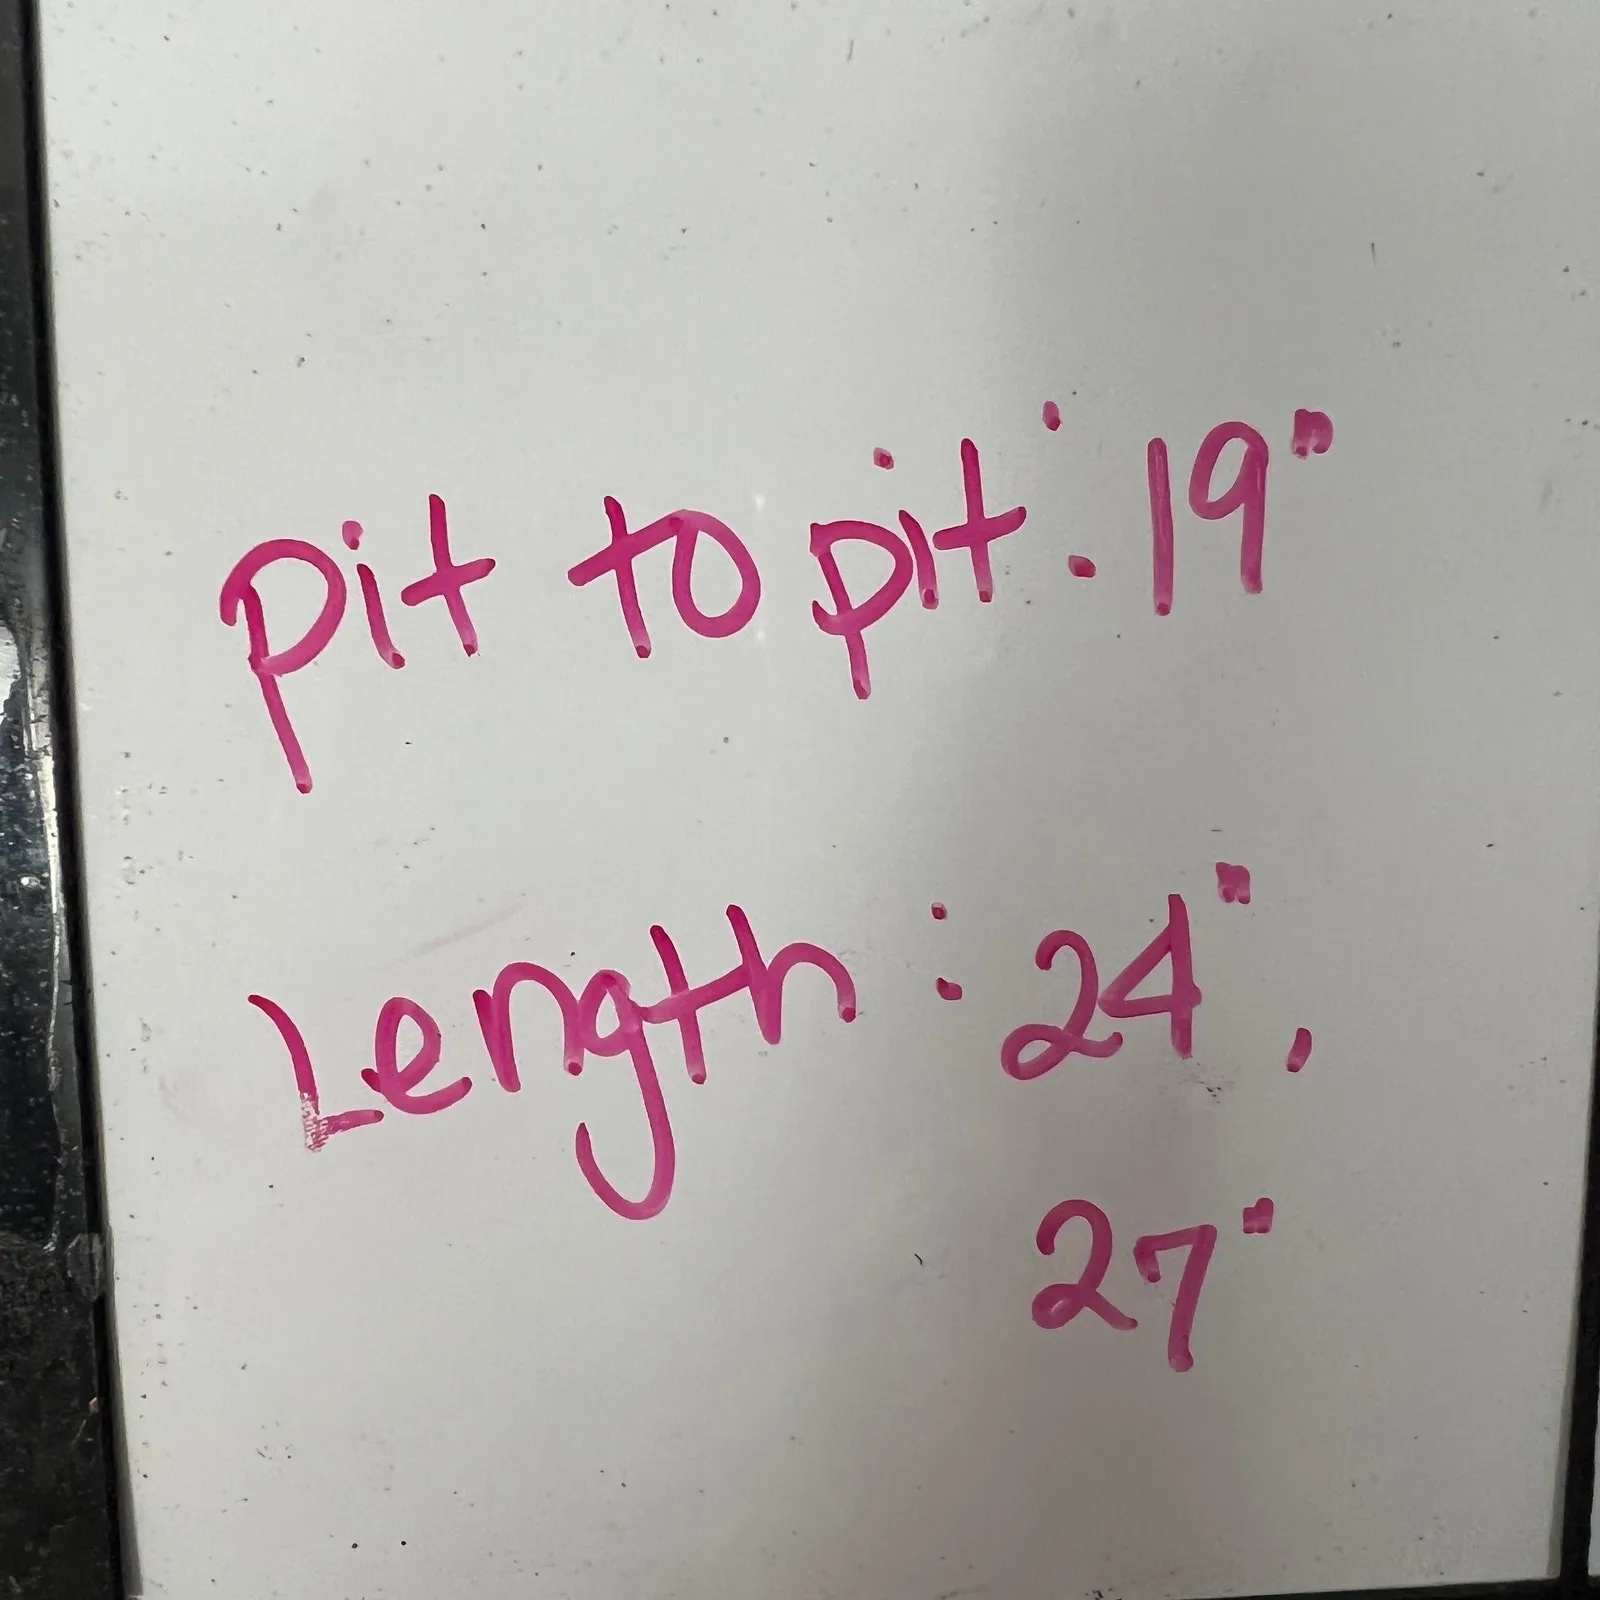 pit to pit: 19"
Length: 24",
27"